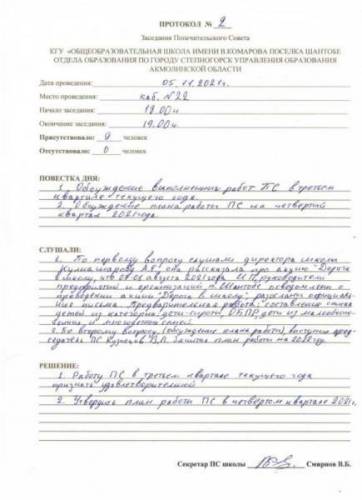 ПРОТОКОЛ № 2
Заседания Попечительского Совета
КГУ «ОБЩЕОБРАЗОВАТЕЛЬНАЯ ШКОЛА ИМЕНИ В.КОМАРОВА ПОСЕЛКА ШАНТОБЕ
ОТДЕЛА ОБРАЗОВАНИЯ ПО ГОРОДУ СТЕПНОГОРСК УПРАВЛЕНИЯ ОБРАЗОВАНИЯ
АКМОЛИНСКОЙ ОБЛАСТИ
Дата проведения: 05.11.2021г.
Место проведения: каб. №22
Начало заседания: 18.00ч
Окончание заседания: 19.00ч.
Присутствовало: 9 человек
Отсутствовало: 0 человек
ПОВЕСТКА ДНЯ:
1. Обсуждение выполнения работ ПС в третьем
квартале текущего года.
2. Обсуждение плана работы ПС на четвертый
квартал 2021года
СЛУШАЛИ:
1. По первому вопросу слушали директора школы
она рассказала про акцию "Дорога
в школу",
предприятий и организаций п. Шантобе
проведении акции "Дорога в школу", разослали официаль-
ные письма. Предварительная работа: составление списка
детей из категории дети-сироты, ОБПР, дети из малообес-
2. По второму вопросу (обсуждение плана работы) выступил пред-
седатель ПС
РЕШЕНИЕ:
1. Работу ПС в третьем квартале текущего года
признать удовлетворительной
2. Утвердить план работы ПС в четвертом квартале 2021г.
Секретарь ПС школы Смирнов В.Б.